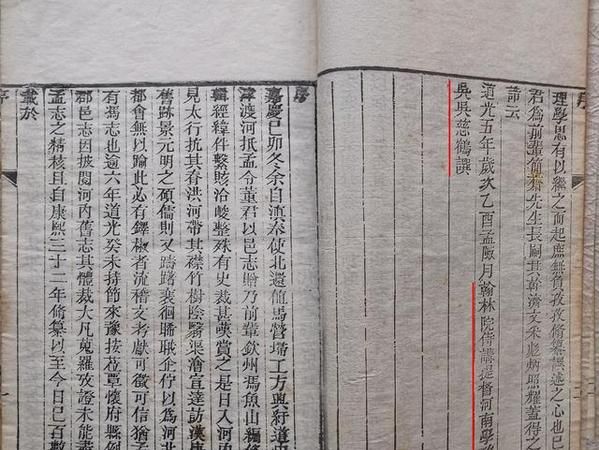 理學思有以繼之而起庶無負孜孜脩纂譔述之心也已
君為前輩簡齋先生長嗣其幹濟文采彪炳照耀蓋得之
諭云
道光五年歲次乙酉孟陬月翰林院侍講提督河南學政
吳吳慈鶴譔
序
嘉慶己卯冬余自滇奉使北還值馬營壩工方興紆道由
津渡河抵孟令董君以邑志贈乃前輩欽州馮魚山編脩
輯經緯件繫賅洽峻整殊有史裁甚嘆賞之是日入河內
見太行抗其脊洪河帶其襟竹樹陰翳渠澮宣達訪漢唐
舊跡景元明之碩儒則又躊躇裵徊瞻眺企佇以為河北
都會無以踰此必有鐸椒者流稽文考獻可徵可信猶孟
有馮志也逾六年道光癸未持節來豫按莅覃懷府縣倒
郡邑志因披閱河內舊志其體裁大凡蒐羅攷證未能盡
孟志之精核且自康熙三十二年脩纂以至今日已百數
載於
序